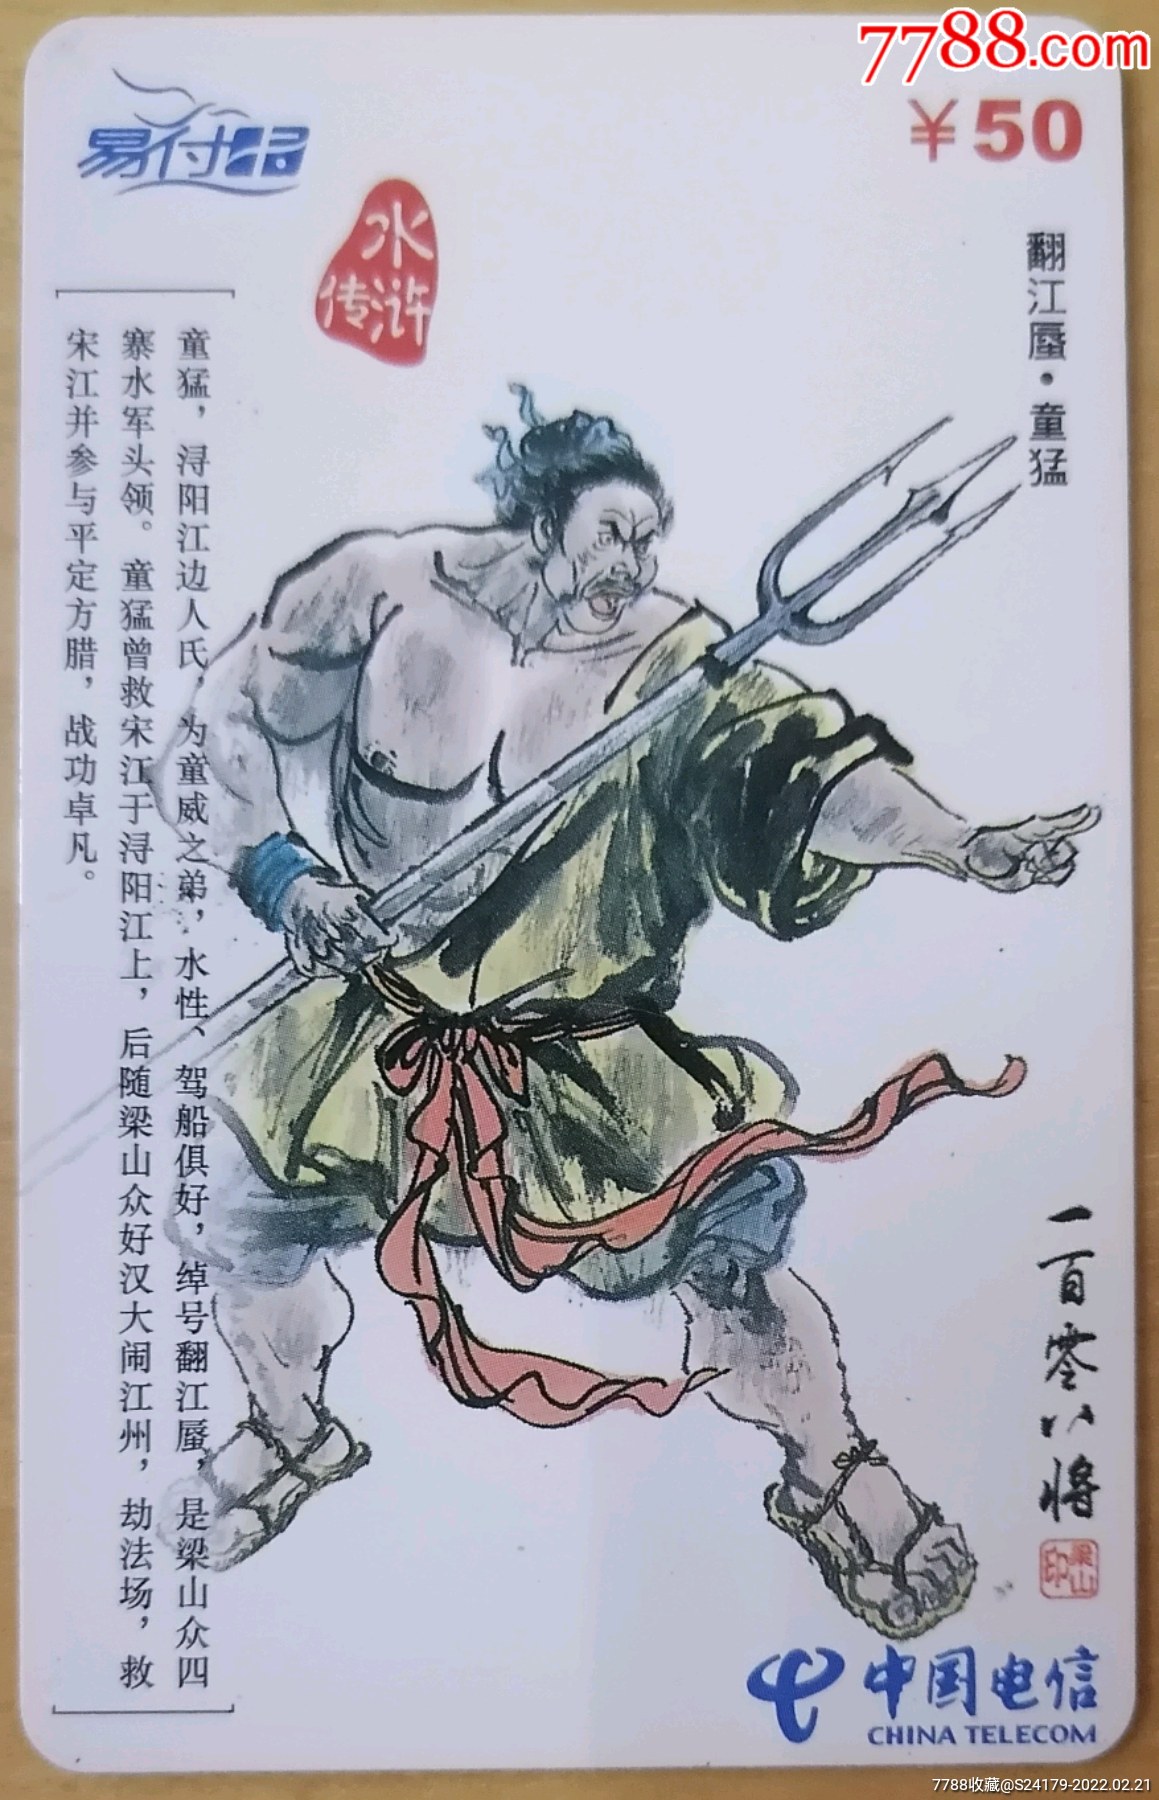 7788.com
易付通
¥50
水浒传
翻江蜃·童猛
童猛，浔阳江边人氏，为童威之弟，水性、驾船俱好，绰号翻江蜃，是梁山众四
寨水军头领。童猛曾救宋江于浔阳江上，后随梁山众好汉大闹江州，劫法场，救
宋江并参与平定方腊，战功卓凡。
一百零八将
梁山印
中国电信
CHINA TELECOM
7788收藏@S24179-2022.02.21